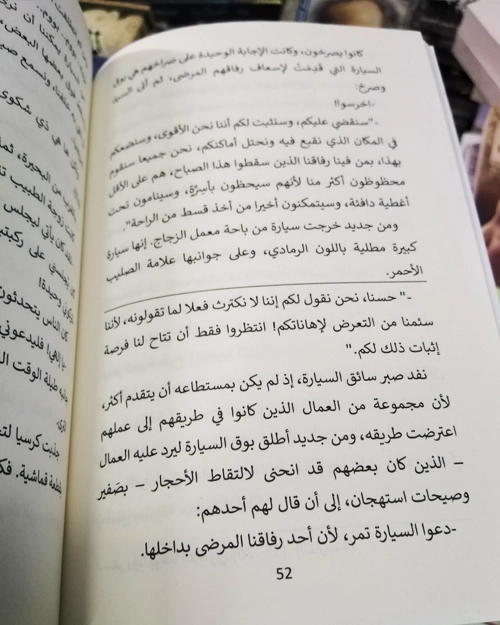 كانوا يصرخون، وكانت الإجابة الوحيدة على صراخهم هي بوق
السيارة التي قدِمَتْ لإسعاف رفاقهم المرضى، لم أنَ السيد
وصرخ:
-اخرسوا!
-"سنقضي عليكم، وسنثبت لكم أننا نحن الأقوى، وسنضعكم
في المكان الذي نقبع فيه ونحتل أماكنكم، نحن جميعا سنقوم
بهذا، بمن فينا رفاقنا الذين سقطوا هذا الصباح، هم على الأقل
محظوظون أكثر منا لأنهم سيحظون بأسِرّة، وسينامون تحت
أغطية دافئة، وسيتمكنون أخيرا من أخذ قسط من الراحة".
ومن جديد خرجت سيارة من باحة معمل الزجاج. إنها سيارة
كبيرة مطلية باللون الرمادي، وعلى جوانبها علامة الصليب
الأحمر.
-" حسنا، نحن نقول لكم إننا لا نكترث فعلا لما تقولونه، لأننا
سئمنا من التعرض لإهاناتكم! انتظروا فقط أن تتاح لنا فرصة
إثبات ذلك لكم."
نفد صبر سائق السيارة، إذ لم يكن بمستطاعه أن يتقدم أكثر،
لأن مجموعة من العمال الذين كانوا في طريقهم إلى عملهم
اعترضت طريقه، ومن جديد أطلق بوق السيارة ليرد عليه العمال
– الذين كان بعضهم قد انحنى لالتقاط الأحجار – بصَفير
وصيحات استهجان، إلى أن قال لهم أحدهم:
-دعوا السيارة تمر، لأن أحد رفاقنا المرضى بداخلها.
52